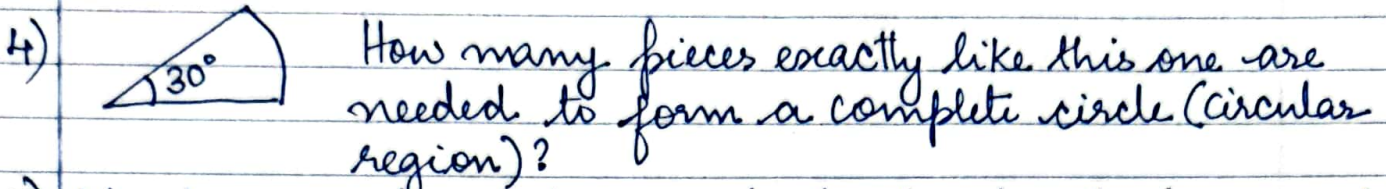 4) 30° How many pieces exactly like this one are
needed to form a complete circle (circular
region)?